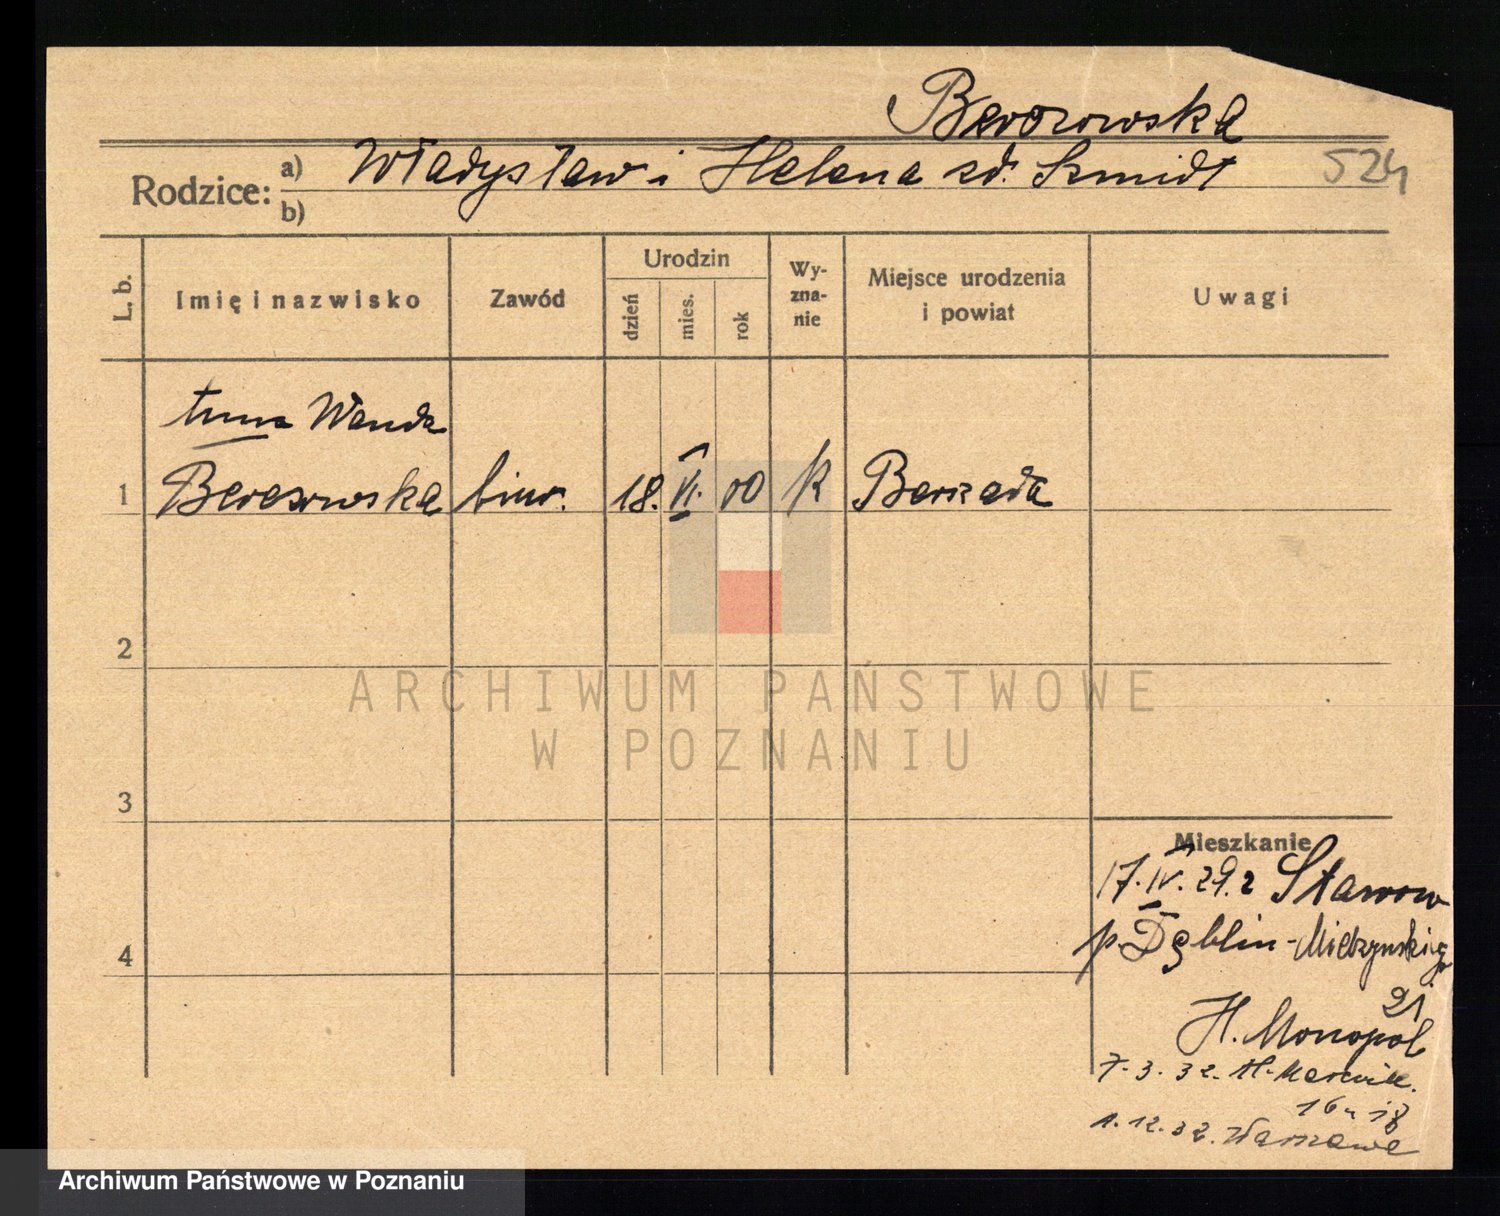 Berezowska
Rodzice: a) Władysław i Helena zd. Szmidt
524
b)
L. b. Imię i nazwisko Zawód Urodzin dzień mies. rok Wy-zna-nie Miejsce urodzenia i powiat Uwagi
Anna Wanda
1 Berezowska biur. 18. VI. 00 k Berszada
2
ARCHIWUM PAŃSTWOWE
W POZNANIU
3
Mieszkanie
17.IV.29. z Stawów
4 p. Dęblin - Mielżyńskiego
21
H. Monopol
7.3.32. M-
16 18
1.12.32. Warszawa
Archiwum Państwowe w Poznaniu